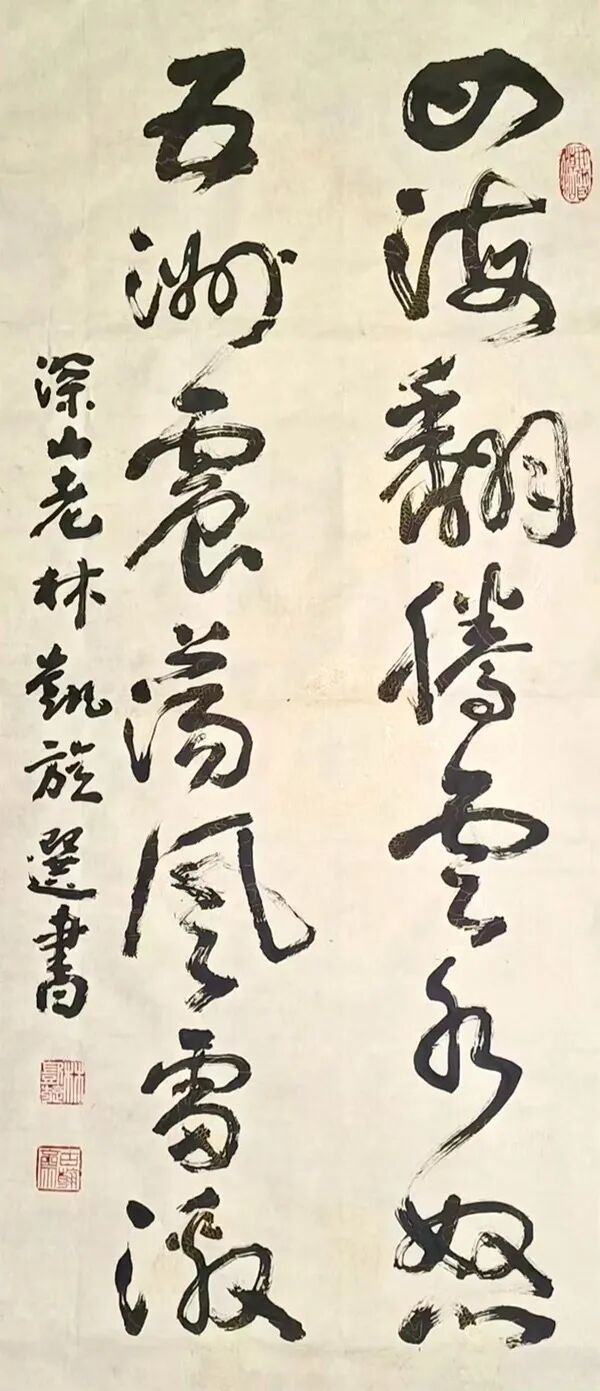 四海翻騰雲水怒
五洲震蕩風雷激
深山老林凱旋選書